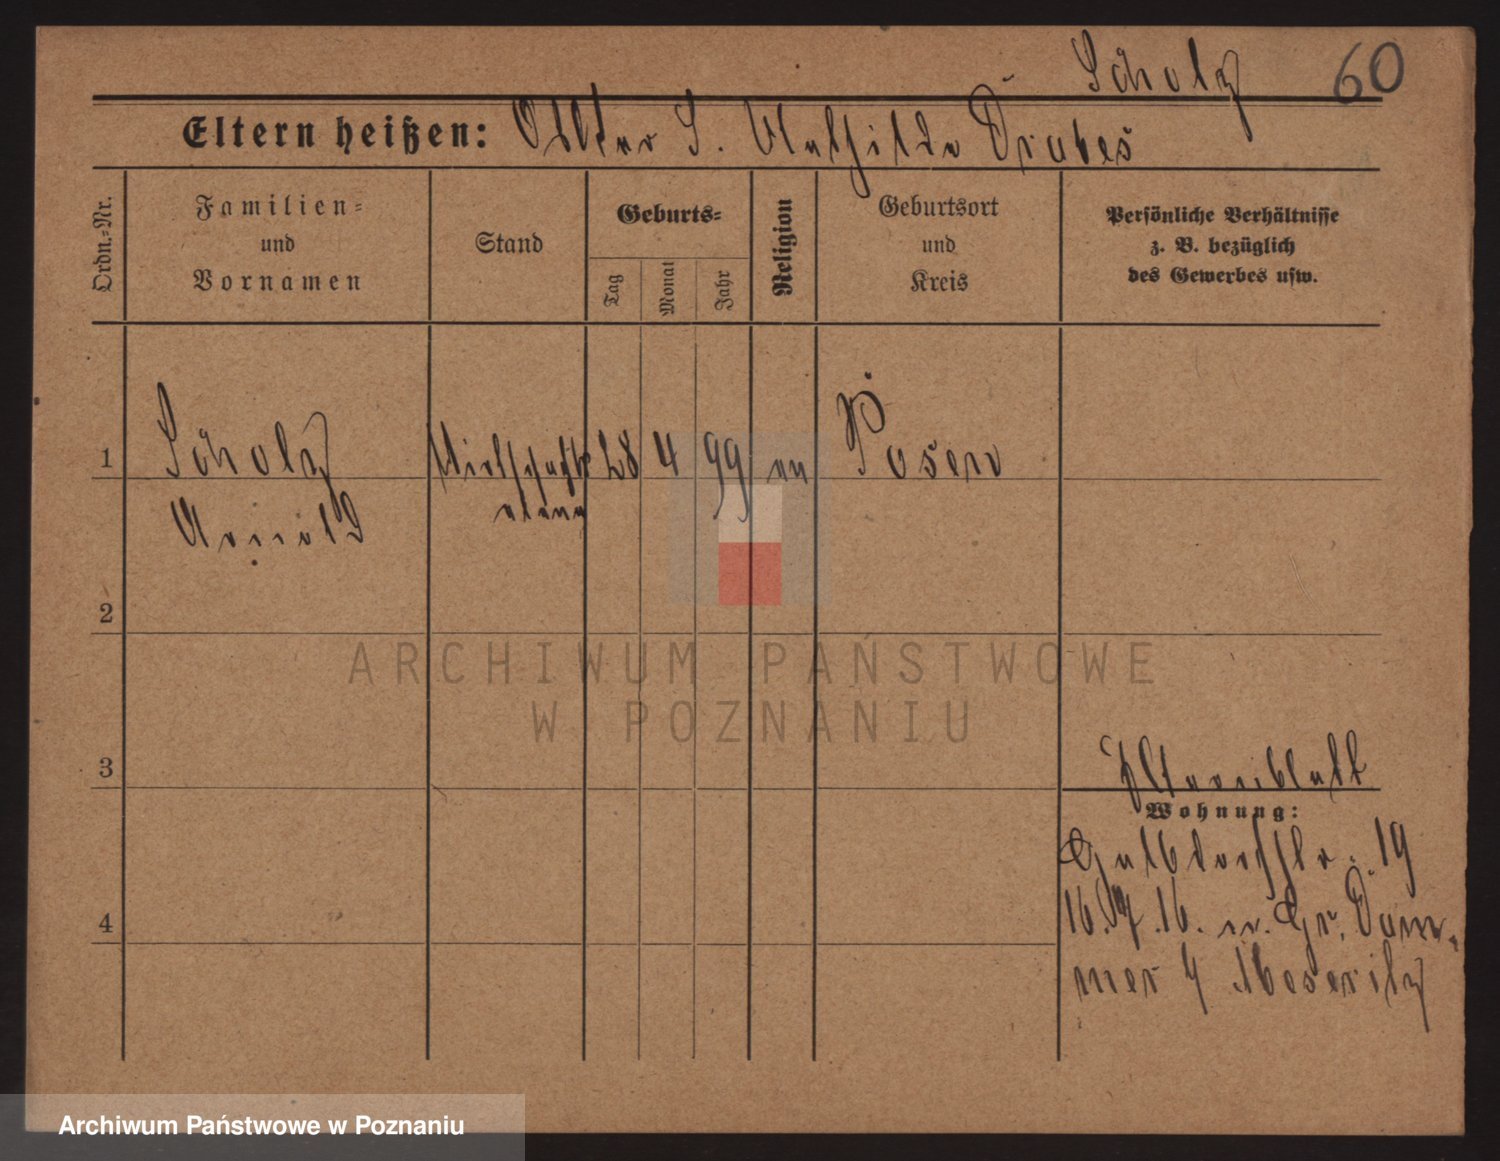 Scholz 60
Eltern heißen: Oskar S. Mathilde Drabes
Ordn.-Nr.
Familien-
und
Vornamen
Stand
Geburts-
Tag
Monat
Jahr
Religion
Geburtsort
und
Kreis
Persönliche Verhältnisse
z. B. bezüglich
des Gewerbes usw.
1 Scholz Wirtschafts 28 4 99 Posen
Arnold eleve
2
3
Elternblatt
Wohnung:
19
16. 16. n. Gr. Dam-
4
mer Meseritz
ARCHIWUM PAŃSTWOWE
W POZNANIU
Archiwum Państwowe w Poznaniu